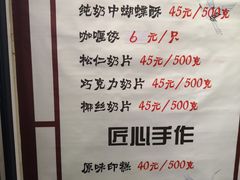 纯奶中蝴蝶酥 45元/500克
咖喱饺 6元/只
松仁奶片 45元/500克
巧克力奶片 45元/500克
椰丝奶片 45元/500克
匠心手作
原味印糕 40元/500克